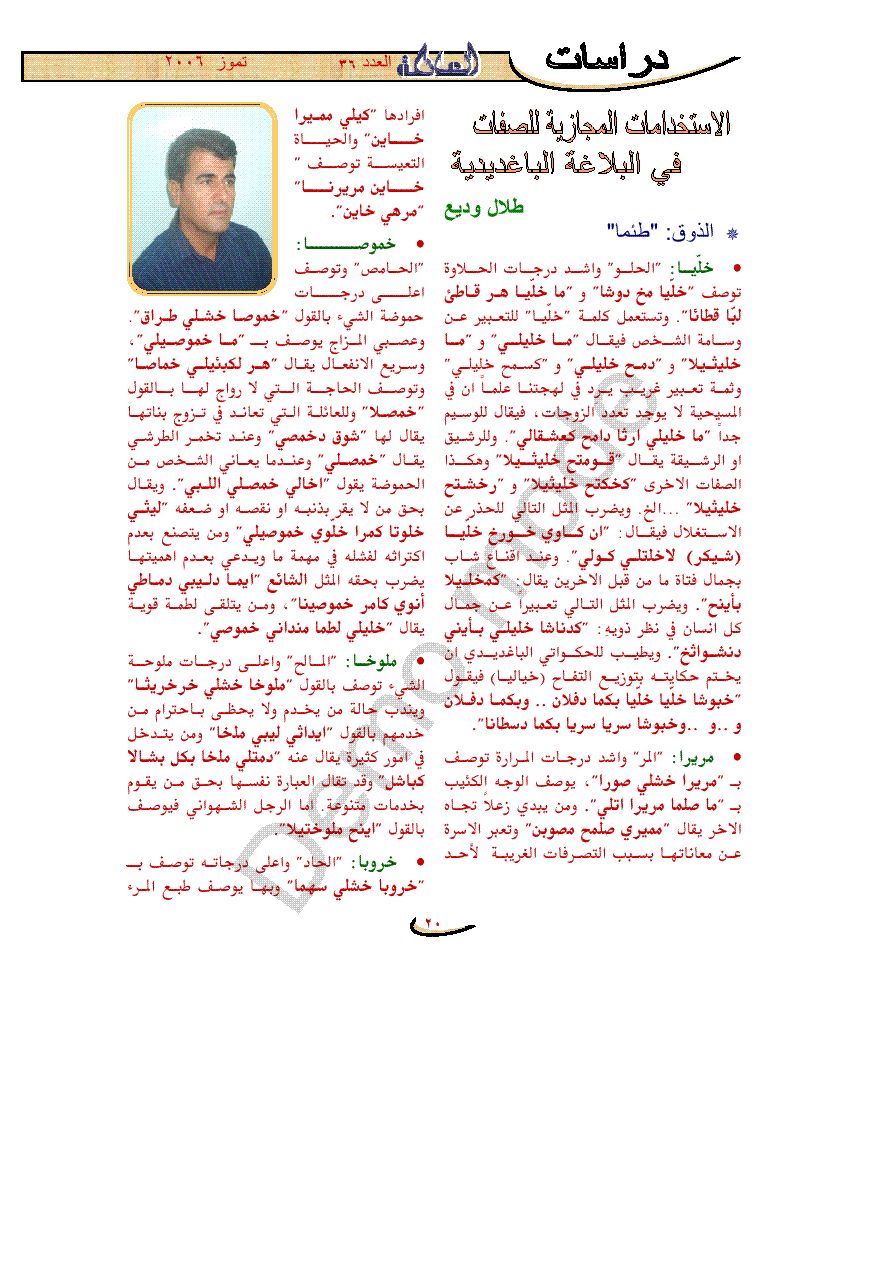 دراسات
العدد ٣٦
تموز ٢٠٠٦
الاستخدامات المجازية للصفات
في البلاغة الباغديدية
طلال وديع
الذوق: "طئما"
• خلّيـا: "الحلـو" واشد درجـات الحـلاوة
توصف "خلّيا مخ دوشا" و "ما خلّيـا هـر قـاطئ
لبّا قطائا". وتستعمل كلمـة "خلّيـا" للتعـبير عـن
وسـامة الشـخص فيقـال "مـا خليلـي" و "مـا
خليثـيلا" و "دمـح خليلـي" و "كسـمح خليلي"
وثمـة تعـبير غريـب يـرد في لهجتنـا علمـاً ان في
المسيحية لا يوجد تعدد الزوجات، فيقال للوسيم
جداً "ما خليلي ارثا دامح كعشقالي". وللرشـيق
او الرشـيقة يقـال "قـومتح خليثـيلا" وهكـذا
الصفات الاخرى "كخكتح خليثيلا" و "رخشتح
خليثيلا" ...الخ. ويضرب المثل التالي للحذر عن
الاسـتغلال فيقـال: "ان كـاوي خـورخ خلّيـا
(شـيكر) لاخلتلـي كـولي". وعنـد اقنـاع شـاب
بجمال فتاة ما من قبل الاخرين يقال: "كمخلـيلا
بأينح". ويضرب المثل التـالي تعـبيرا عـن جمـال
كل انسان في نظر ذويهِ: "كدناشا خليلـي بـأيني
دنشـواثخ". ويطيـب للحكـواتي الباغديـدي ان
يختـم حكايتـه بتوزيـع التفـاح (خياليـا) فيقـول
"خبوشا خليّا خلّيا بكما دفلان .. وبكمـا دفـلان
و ..و ..وخبوشا سريا سريا بكما دسطانا".
• مريرا: "المر" واشد درجـات المـرارة توصـف
بـ "مريرا خشلي صورا"، يوصف الوجه الكئيب
بـ "ما صلما مريرا اتلي". ومن يبدي زعلاً تجـاه
الاخر يقال "مميري صلمح مصوبن" وتعبر الاسرة
عـن معاناتهـا بسـبب التصـرفات الغريبـة لأحـد
افرادها "كيلي ممـيرا
خـاين" والحيـاة
التعيسـة توصـف "
خـاين مريرنـا"
"مرهي خاين".
• خموصـا:
"الحـامص" وتوصـف
اعلـى درجـات
حموضة الشيء بالقول "خموصـا خشـلي طـراق".
وعصـبي المـزاج يوصـف بـ "مـا خموصـيلي"،
وسـريع الانفعـال يقـال "هـر لكبثيلـي خماصـا"
وتوصـف الحاجـة الـتي لا رواج لهـا بـالقول
"خمصـلا" وللعائلـة الـتي تعانـد في تـزوج بناتهـا
يقال لها "شوق دخمصي" وعنـد تخمـر الطرشـي
يقـال "خمصـلي" وعندمـا يعـاني الشـخص مـن
الحموضة يقول "اخالي خمصـلي اللـبي". ويقـال
بحق من لا يقر بذنبـه او نقصـه او ضـعفه "ليثـي
خلوتا كمرا خلّوي خموصيلي" ومن يتصنع بعدم
اكتراثه لفشله في مهمة ما ويـدعي بعـدم اهميتهـا
يضرب بحقه المثل الشائع "ايمـا دلـيبي دمـاطي
أنوي كامر خموصينا"، ومـن يتلقـى لطمـة قويـة
يقال "خليلي لطما منداني خموصي".
• ملوخـا: "المـالح" واعلـى درجـات ملوحـة
الشيء توصف بالقول "ملوخا خشلي خرخريثـا"
ويندب حالة من يخـدم ولا يحظـى بـاحترام مـن
خدمهم بالقول "ايداثي ليبي ملخا" ومن يتـدخل
في امور كثيرة يقال عنه "دمتلي ملخا بكل بشـالا
كباشل" وقد تقال العبارة نفسـها بحـق مـن يقـوم
بخدمات متنوعة. اما الرجل الشـهواني فيوصـف
بالقول "اينح ملوختيلا".
• خروبا: "الحاد" واعلى درجاتـه توصـف بـ
"خروبا خشلي سهما" وبهـا يوصـف طبـع المـرء
٢٠
Demo mode